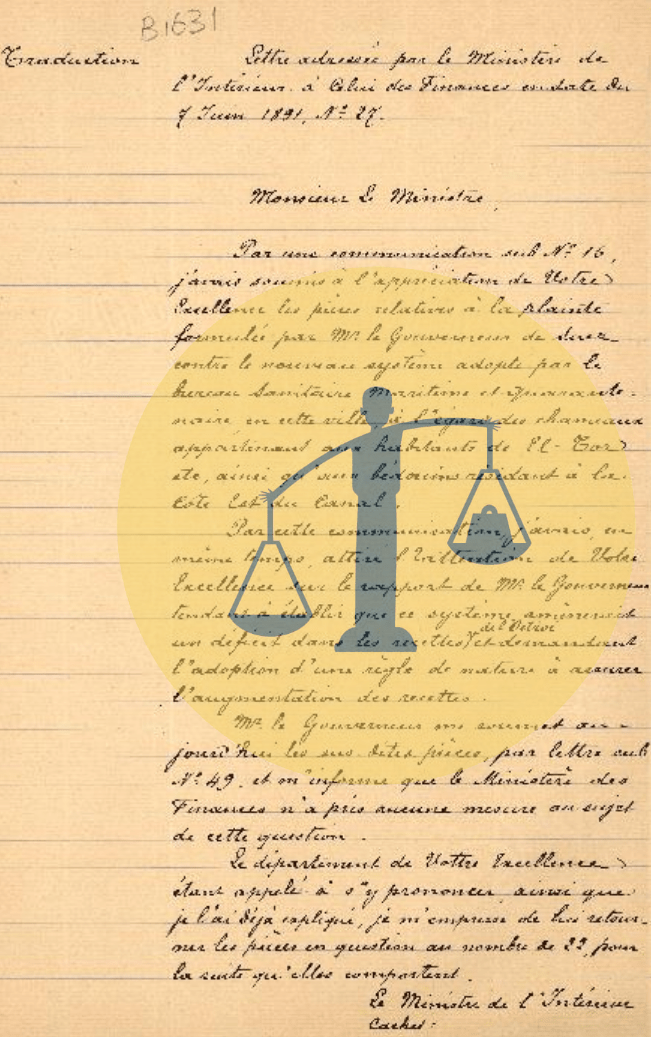 B1631
Traduction
Lettre adressée par le Ministère de
l'Intérieur à Celui des Finances en date du
7 Juin 1891, Nº 27.
Monsieur Le Ministre,
Par une communication sub Nº 16,
j'avais soumis à l'appréciation de Votre
Excellence les pièces relatives à la plainte
formulée par Mr. le Gouverneur de Suez
contre le nouveau système adopté par le
bureau Sanitaire Maritime et Quarante-
naire, en cette ville, à l'égard des chameaux
appartenant aux habitants de El-Tor
etc, ainsi qu'aux bédouins résidant à la
Côte Est du Canal.
Par cette communication, j'avais, en
même temps, attiré l'attention de Votre
Excellence sur le rapport de Mr. le Gouverneur
tendant à établir que ce système amènerait
un déficit dans les recettes de l'Octroi et demandant
l'adoption d'une règle de nature à assurer
l'augmentation des recettes.
Mr. le Gouverneur me soumet au-
jourd'hui les sus dites pièces, par lettre sub
Nº 49, et m'informe que le Ministère des
Finances n'a pris aucune mesure au sujet
de cette question.
Le département de Vottre Excellence
étant appelé à s'y prononcer, ainsi que
je l'ai déjà expliqué, je m'empresse de lui retour-
ner les pièces en question au nombre de 22, pour
la suite qu'elles comportent.
Le Ministre de l'Intérieur
Cachet: